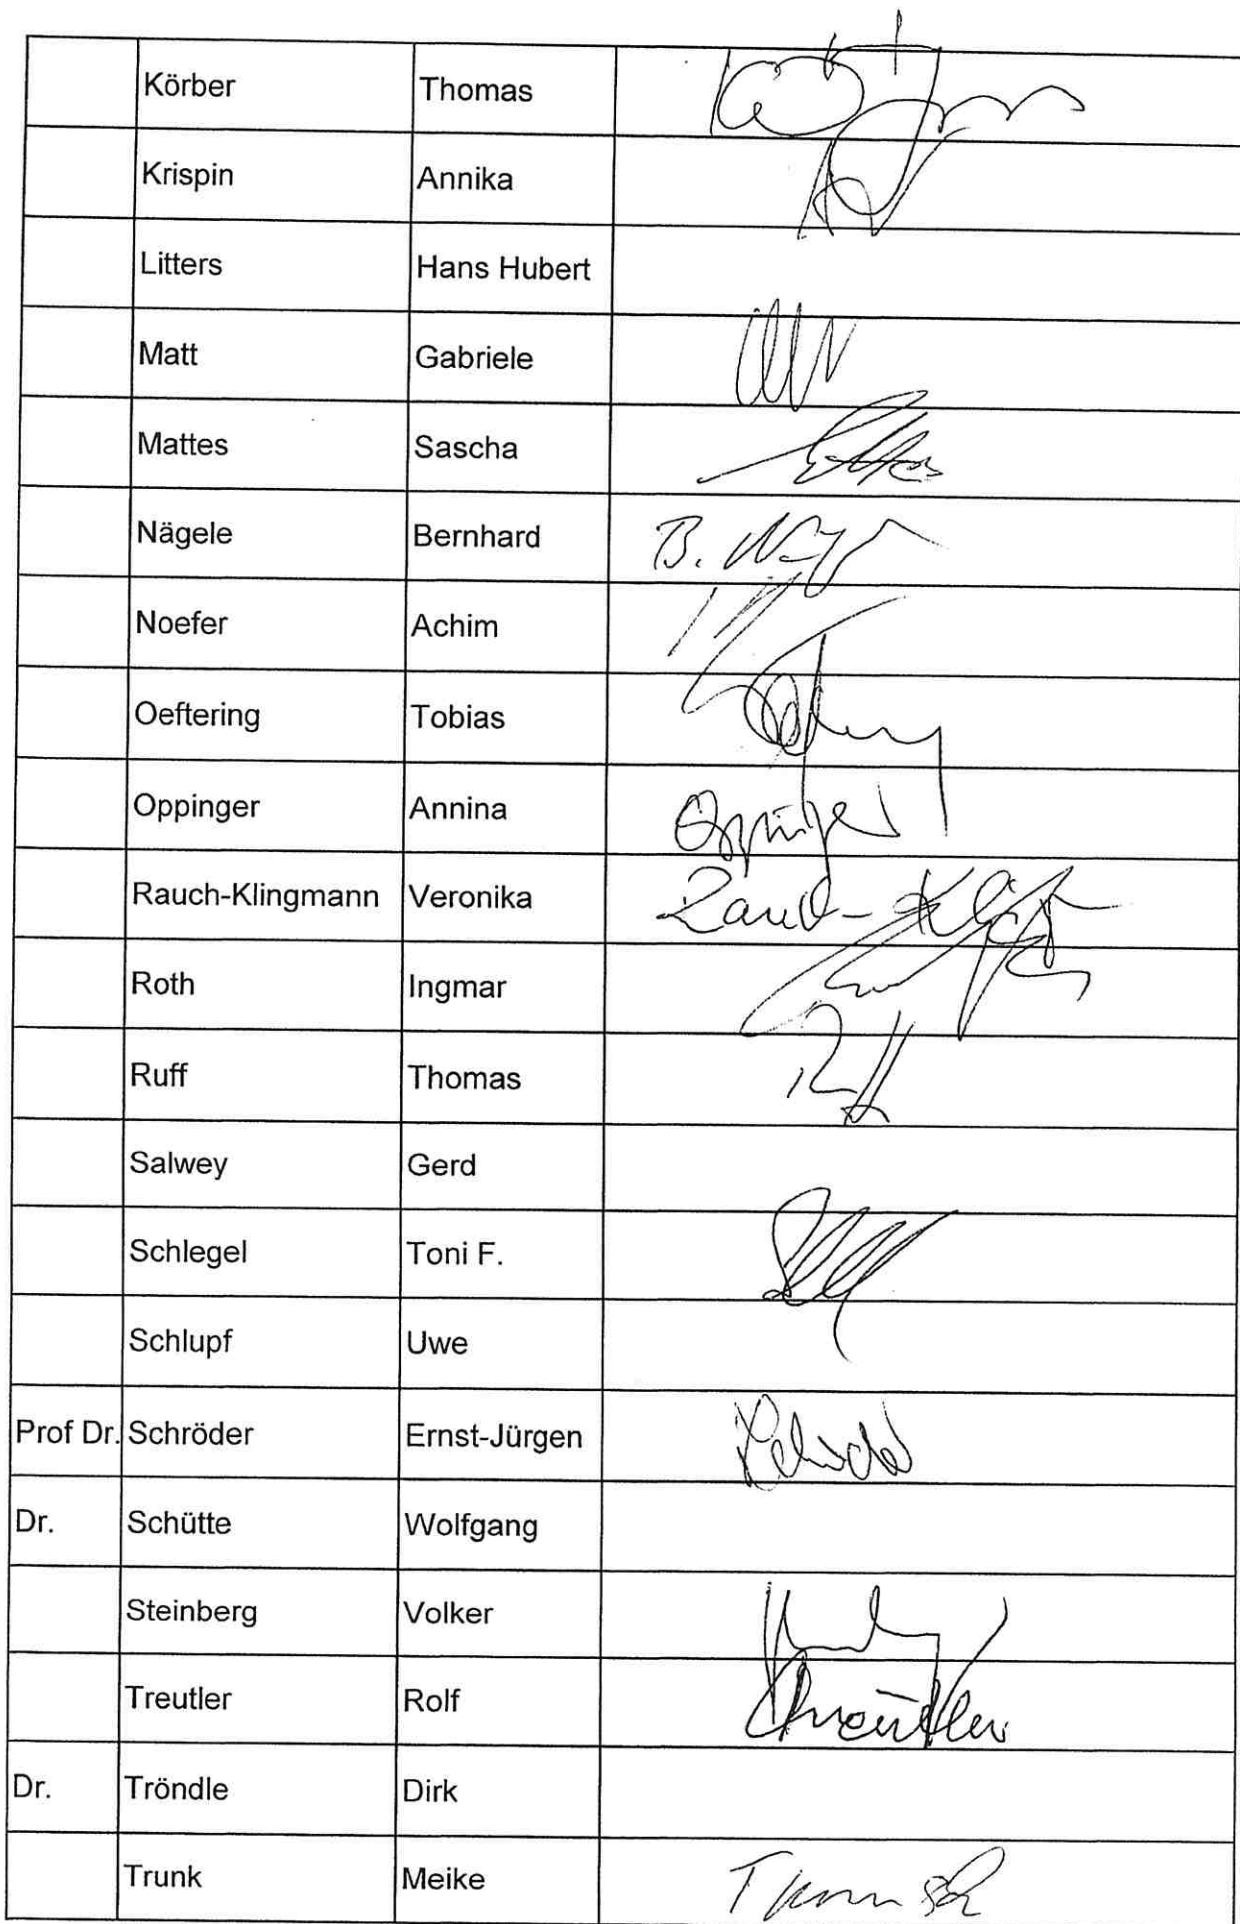 Körber Thomas
Krispin Annika
Litters Hans Hubert
Matt Gabriele
Mattes Sascha
Nägele Bernhard B.
Noefer Achim
Oeftering Tobias
Oppinger Annina Oppinger
Rauch-Klingmann Veronika
Roth Ingmar
Ruff Thomas
Salwey Gerd
Schlegel Toni F.
Schlupf Uwe
Prof Dr. Schröder Ernst-Jürgen
Dr. Schütte Wolfgang
Steinberg Volker
Treutler Rolf Treutler
Dr. Tröndle Dirk
Trunk Meike